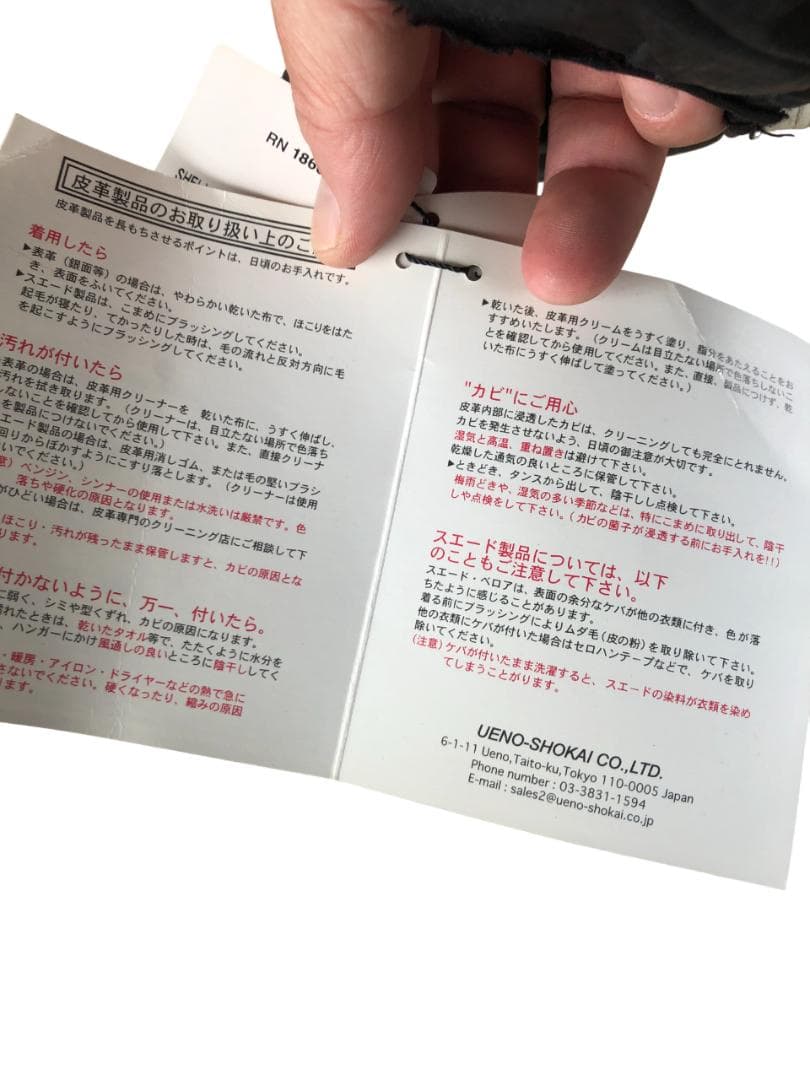 RN 186
SHEL
皮革製品のお取り扱い上のご
皮革製品を長もちさせるポイントは、日頃のお手入れです。
着用したら
▶表革（銀面等）の場合は、やわらかい乾いた布で、ほこりをはた
き、表面をふいてください。
▶スエード製品は、こまめにブラッシングしてください。
起毛が寝たり、てかったりした時は、毛の流れと反対方向に毛
を起こすようにブラッシングしてください。
汚れが付いたら
表革の場合は、皮革用クリーナーを 乾いた布に、うすく伸ばし、
汚れを拭き取ります。（クリーナーは、目立たない場所で色落ち
ないことを確認してから使用して下さい。また、直接クリーナ
を製品につけないでください。）
エード製品の場合は、皮革用消しゴム、または毛の堅いブラシ
回りからぼかすようにこすり落とします。（クリーナーは使用
いでください。）
）ベンジン、シンナーの使用または水洗いは厳禁です。色
落ちや硬化の原因となります。
がひどい場合は、皮革専門のクリーニング店にご相談して下
ほこり・汚れが残ったまま保管しますと、カビの原因とな
ります。
付かないように、万一、付いたら。
に弱く、シミや型くずれ、カビの原因になります。
れたときは、乾いたタオル等で、たたくように水分を
、ハンガーにかけ風通しの良いところに陰干ししてく
・暖房・アイロン・ドライヤーなどの熱で急に
さないでください。硬くなったり、縮みの原因
ります。
▶乾いた後、皮革用クリームをうすく塗り、脂分をあたえることをお
すすめいたします。（クリームは目立たない場所で色落ちしないこ
とを確認してから使用してください。また、直接、製品につけず、乾
いた布にうすく伸ばして塗ってください。）
"カビ"にご用心
皮革内部に浸透したカビは、クリーニングしても完全にとれません。
カビを発生させないよう、日頃の御注意が大切です。
湿気と高温、重ね置きは避けて下さい。
乾燥した通気の良いところに保管して下さい。
▶ときどき、タンスから出して、陰干しし点検して下さい。
梅雨どきや、湿気の多い季節などは、特にこまめに取り出して、陰干
しや点検をして下さい。（カビの菌子が浸透する前にお手入れを!!）
スエード製品については、以下
のこともご注意して下さい。
スエード・ベロアは、表面の余分なケバが他の衣類に付き、色が落
ちたように感じることがあります。
着る前にブラッシングによりムダ毛（皮の粉）を取り除いて下さい。
他の衣類にケバが付いた場合はセロハンテープなどで、ケバを取り
除いてください。
（注意）ケバが付いたまま洗濯すると、スエードの染料が衣類を染め
てしまうことがります。
UENO-SHOKAI CO.,LTD.
6-1-11 Ueno,Taito-ku,Tokyo 110-0005 Japan
Phone number : 03-3831-1594
E-mail : sales2@ueno-shokai.co.jp